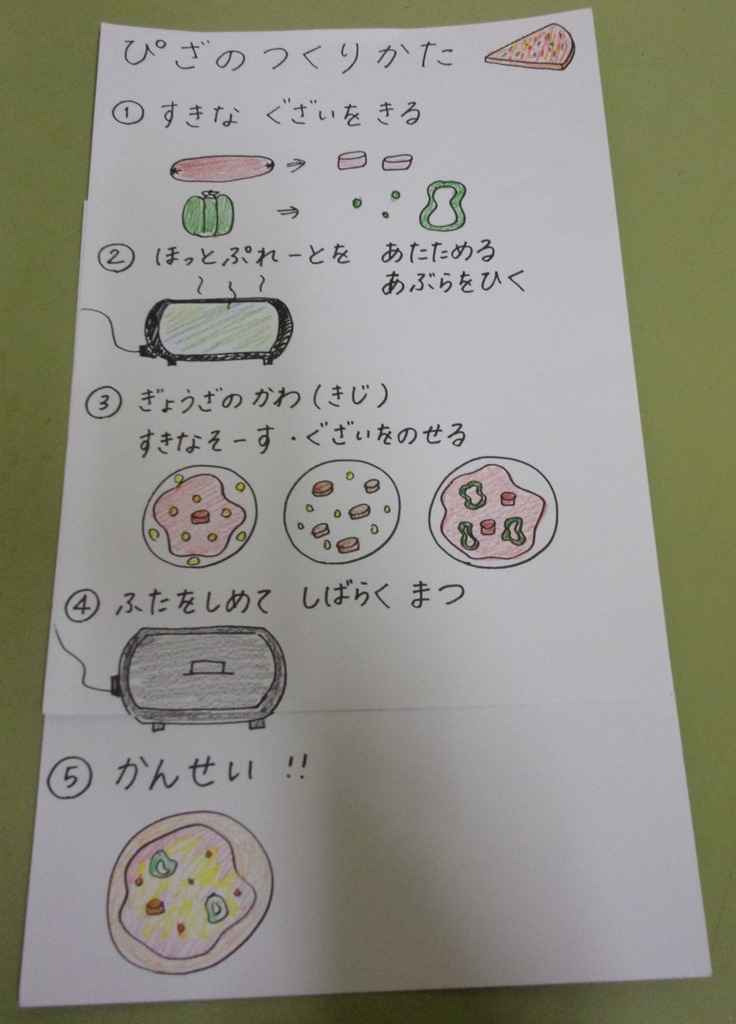 ぴざのつくりかた
① すきな ぐざいを きる
② ほっとぷれーとを あたためる
あぶらをひく
③ ぎょうざの かわ(きじ)
すきなそーす・ぐざいをのせる
④ ふたをしめて しばらく まつ
⑤ かんせい !!